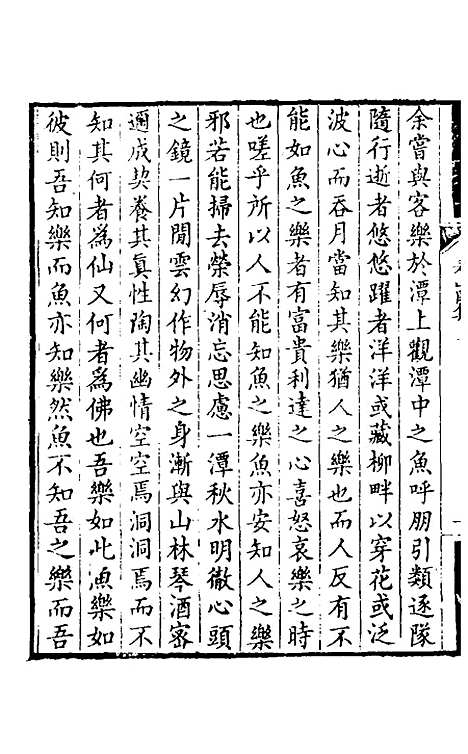 余嘗與客樂於潭上觀潭中之魚呼朋引類逐隊
隨行逝者悠悠躍者洋洋或藏柳畔以穿花或泛
波心而吞月當知其樂猶人之樂也而人反有不
能如魚之樂者有富貴利達之心喜怒哀樂之時
也嗟乎所以人不能知魚之樂魚亦安知人之樂
邪若能掃去榮辱消忘思慮一潭秋水明徹心頭
之鏡一片閒雲幻作物外之身漸與山林琴酒密
邇成契養其真性陶其幽情空空焉洞洞焉而不
知其何者為仙又何者為佛也吾樂如此魚樂如
彼則吾知樂而魚亦知樂然魚不知吾之樂而吾